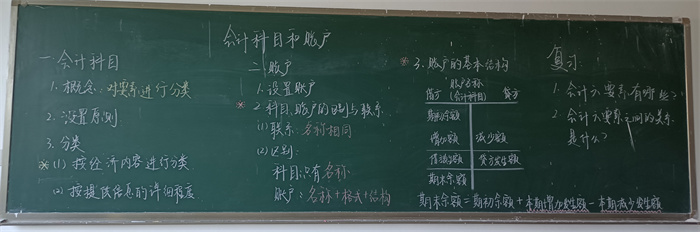 会计科目和账户
一、会计科目
1. 概念：对要素进行分类
2. 设置原则
3. 分类
※(1) 按经济内容进行分类
(2) 按提供信息的详细程度
二、账户
1. 设置账户
※2. 科目、账户的区别与联系
(1) 联系：名称相同
(2) 区别：
科目：只有名称
账户：名称+格式+结构
※3. 账户的基本结构
账户名称
借方 (会计科目) 贷方
期初余额
增加额 减少额
借方发生额 贷方发生额
期末余额
期末余额=期初余额+本期增加发生额-本期减少发生额
复习：
1. 会计六要素有哪些？
2. 会计六要素之间的关系
是什么？